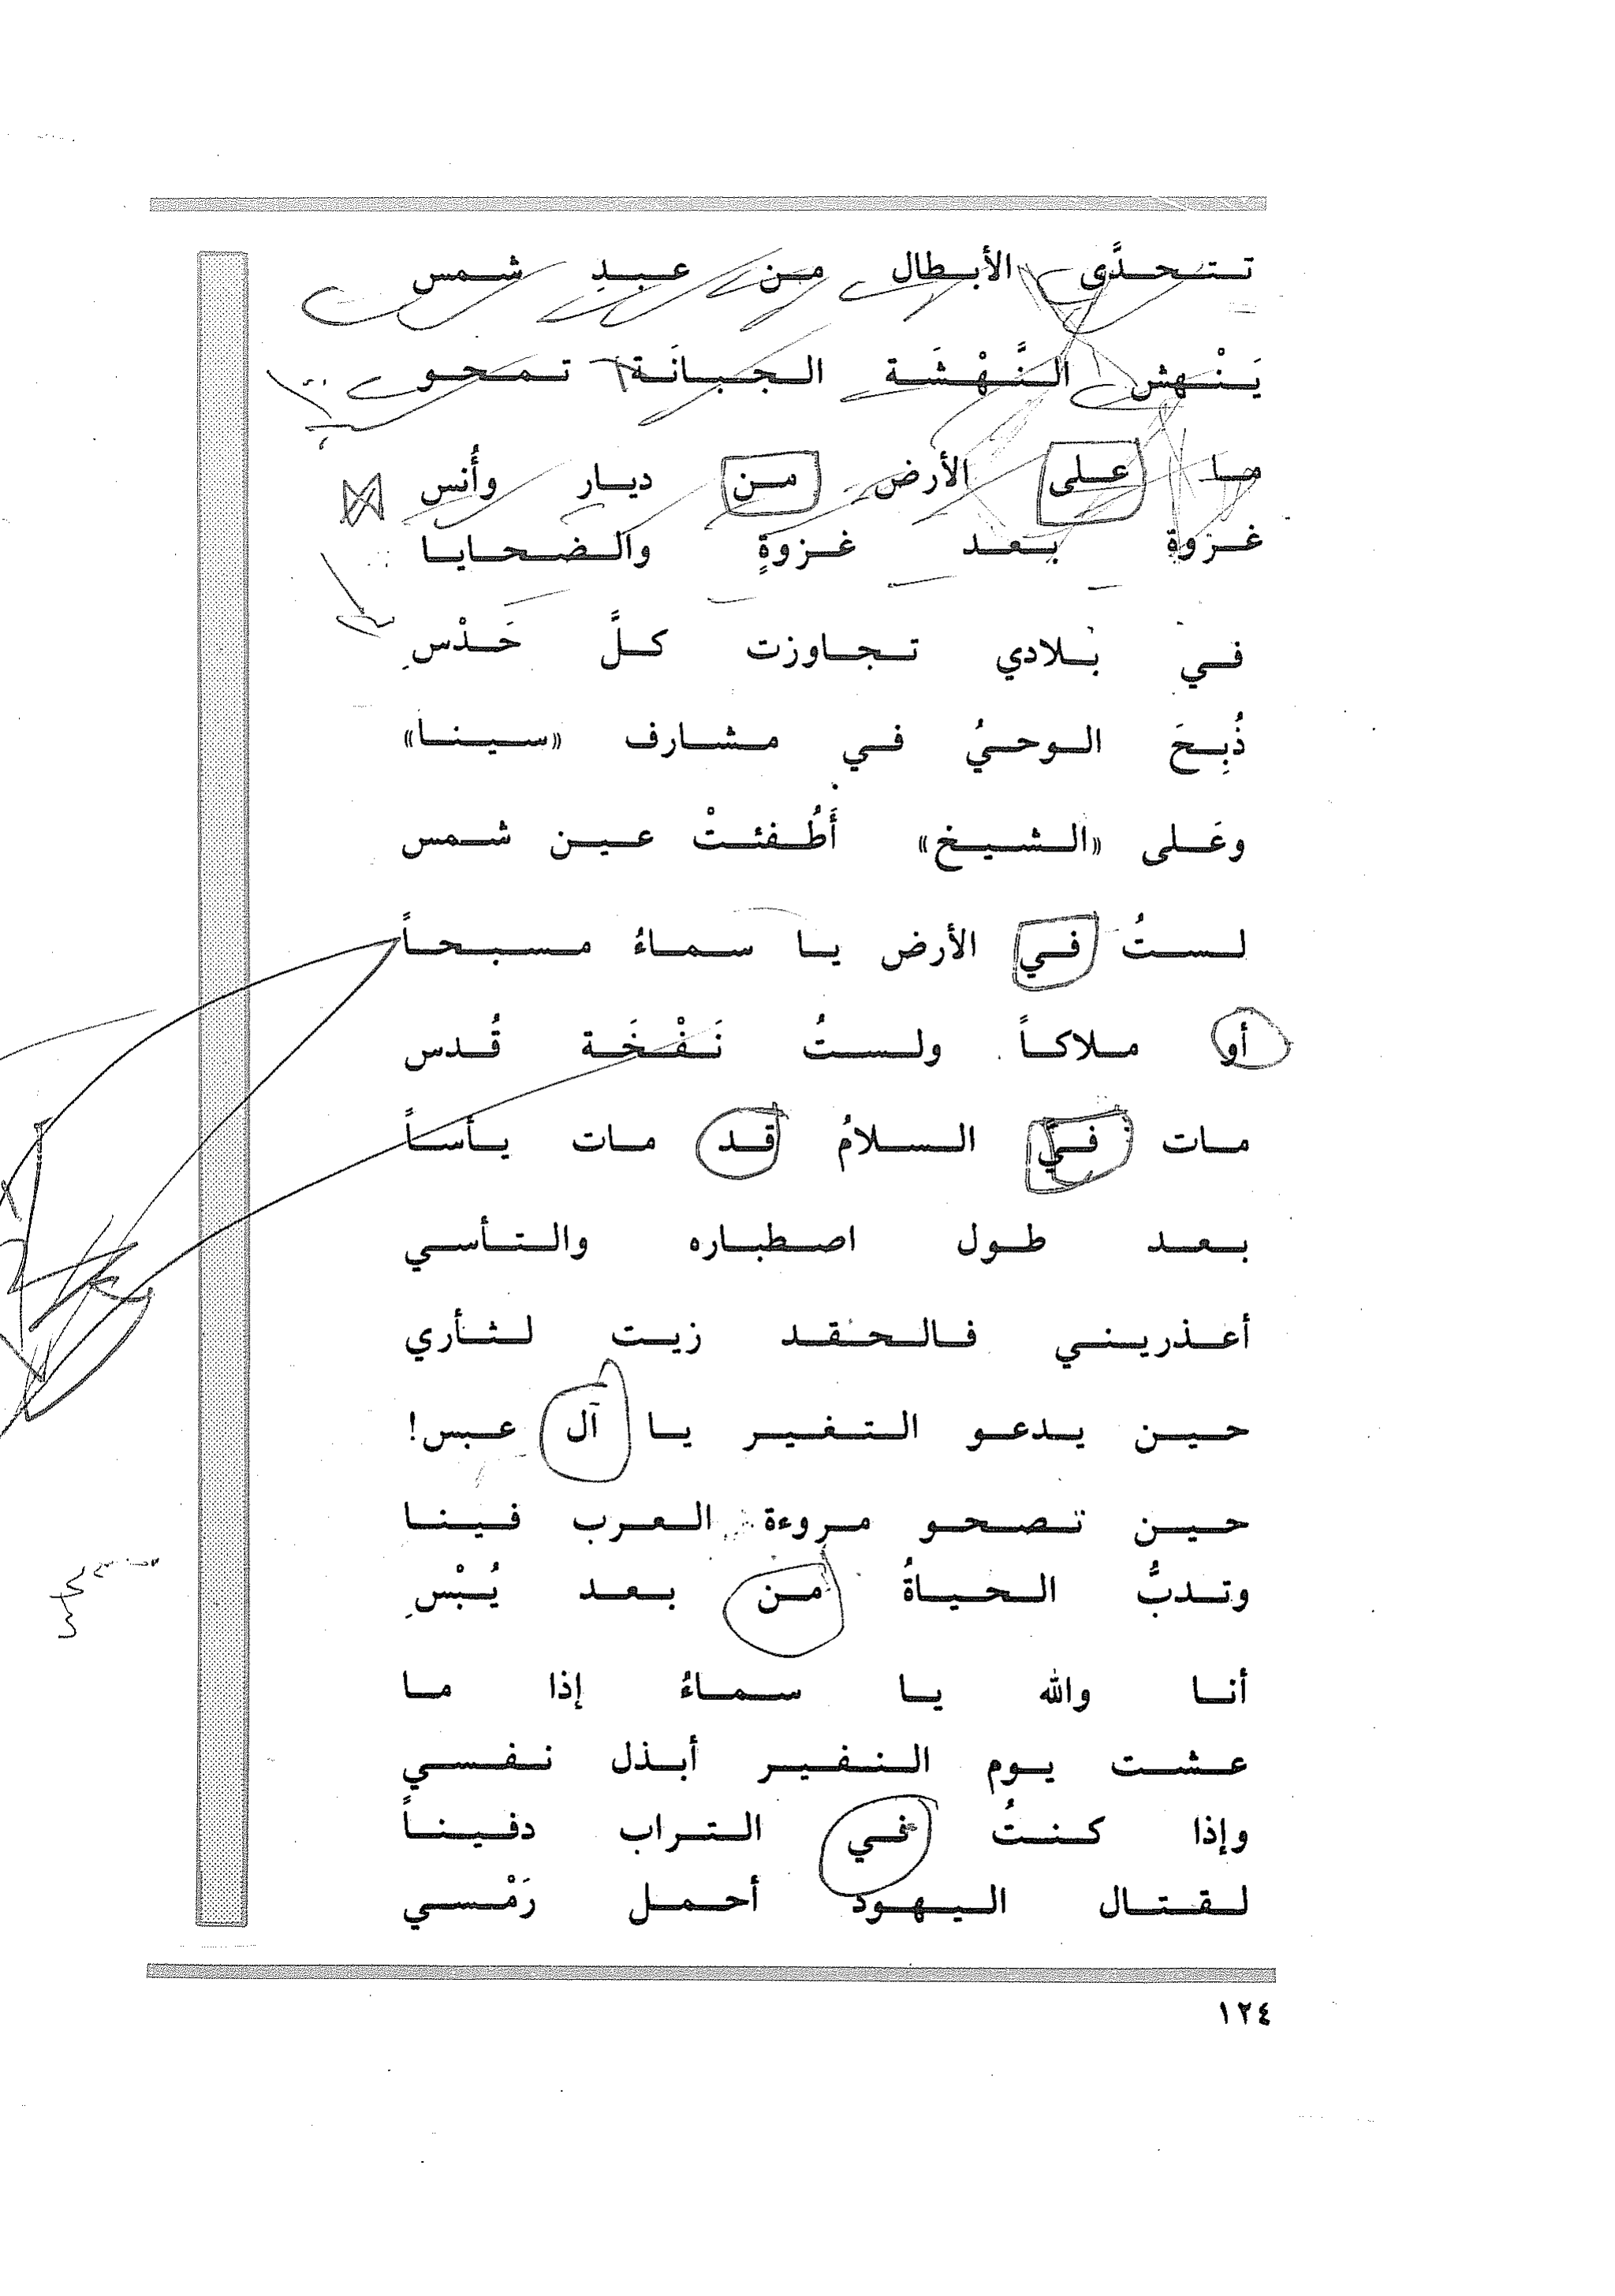 تتحدَّى الأبطال من عبدِ شمس
يَنْهش النَّهْشَة الجبانَة تمحو
ما على الأرض من ديار وأُنس
غزوة بعد غزوةٍ والضحايا
في بلادي تجاوزت كلَّ حَدْسِ
ذُبِحَ الوحيُ في مشارف «سينا»
وعَلى «الشيخ» أَطُفئتْ عين شمس
لستُ في الأرض يا سماءُ مسبحاً
أو ملاكاً ولستُ نَفْخَة قُدس
مات فيَّ السلامُ قد مات يأساً
بعد طول اصطباره والتأسي
أعذريني فالحقد زيت لثأري
حين يدعو النفير يا آل عبس!
حين تصحو مروءة العرب فينا
وتدبُّ الحياةُ من بعد يُبْسِ
أنا والله يا سماءُ إذا ما
عشت يوم النفير أبذل نفسي
وإذا كنتُ في التراب دفيناً
لقتال اليهود أحمل رَمْسي
١٢٤